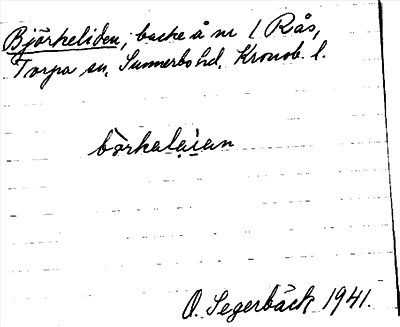 Björkeliden, backe å nr 1 Rås,
Torpa sn, Sunnerbo hd, Kronob. l.
börkalaian
O. Segerbäck 1941.